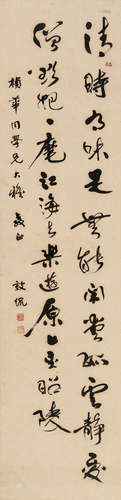 清時有味是無能閒愛孤雲靜愛
僧欲把一麾江海去樂遊原上望昭陵
楠華同學兄大雅教正 啟侃